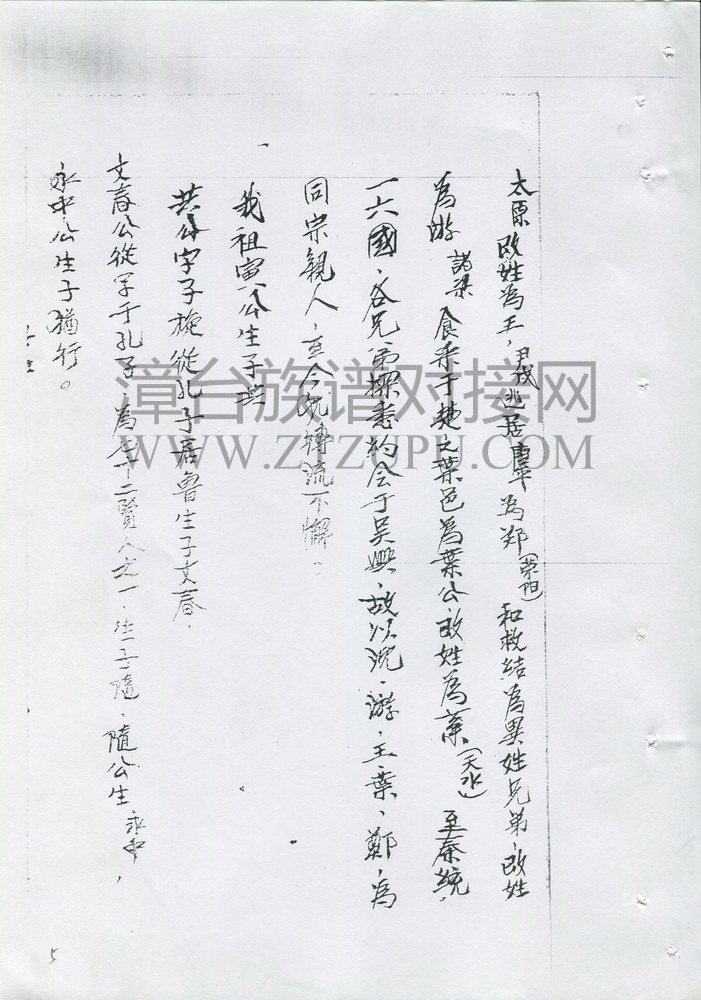 太原改姓為王，尹戌逃居為鄭(荣阳)和救結為異姓兄弟，改姓
為游 諸梁 食采于楚之葉邑為葉公改姓為葉(天水) 至秦統
一六國，各兄弟探悉約会于吳興，故以沈、游、王葉、鄭、為
同宗親人，至今流轉流不懈。
我祖寅公生子
共公字子旄從孔子居魯生子文春．
文春公從学于孔子，為七十二賢人之一．生子隨．隨公生永中，
永中公生子猶行。
漳台族谱对接网
WWW.ZTZUPU.COM
5